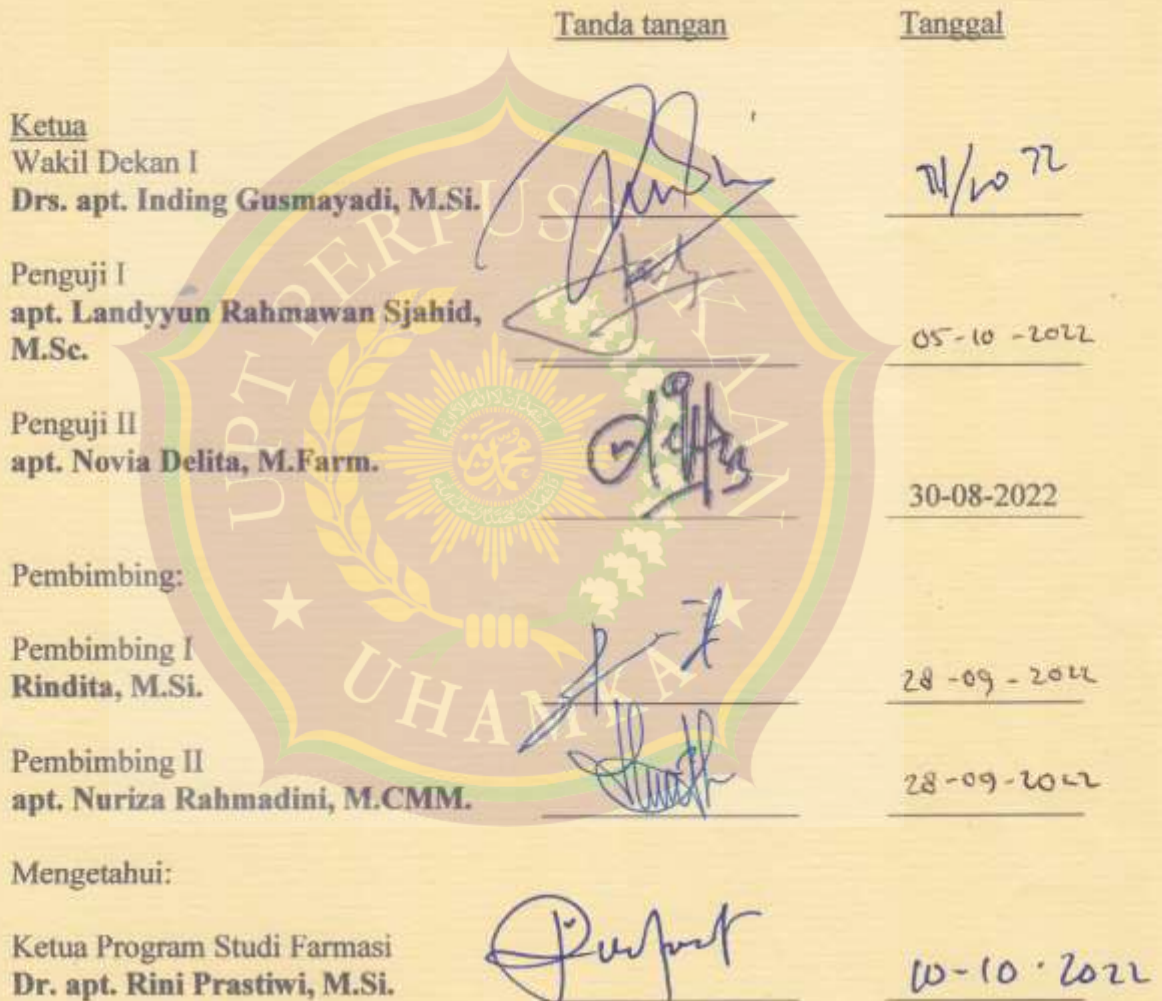 Tanda tangan Tanggal
Ketua
Wakil Dekan I
Drs. apt. Inding Gusmayadi, M.Si.
Penguji I
apt. Landyyun Rahmawan Sjahid,
M.Sc.
05-10-2022
Penguji II
apt. Novia Delita, M.Farm.
30-08-2022
Pembimbing:
Pembimbing I
Rindita, M.Si.
28-09-2022
Pembimbing II
apt. Nuriza Rahmadini, M.CMM.
28-09-2022
Mengetahui:
Ketua Program Studi Farmasi
Dr. apt. Rini Prastiwi, M.Si.
10-10-2022
UPT PERPUSTAKAAN
UHAMKA